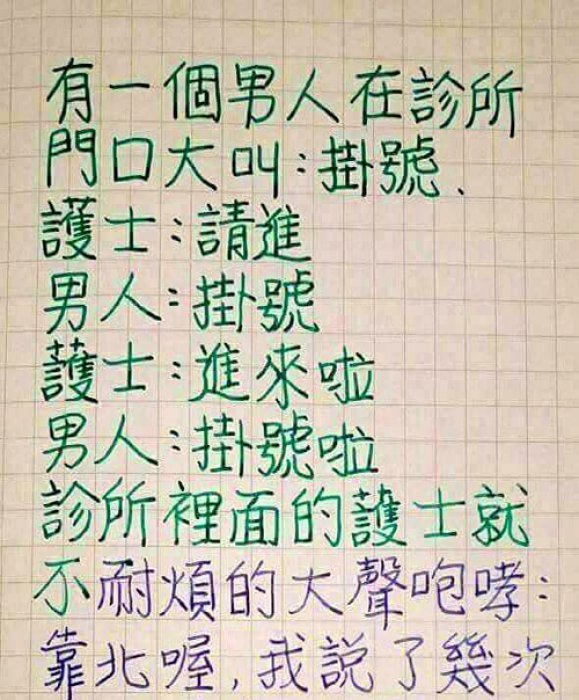 有一個男人在診所
門口大叫:掛號.
護士:請進
男人:掛號
護士:進來啦
男人:掛號啦
診所裡面的護士就
不耐煩的大聲咆哮:
靠北喔,我說了幾次